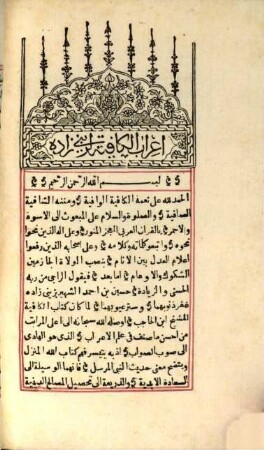 اعراب الكافية لزيني زاده
بسم الله الرحمن الرحيم
الحمد لله على نعمة الكافية الوافية و ومنته الشافية
الصافية و والصلوة والسلام على المبعوث الى الاسود
والاحمر و بالقرآن العربى المعجز المنور و وعلى آله الذين نحوا
نحوه و واتبعوا كلماته وكلامه و وعلى صحابه الذين رفعوا
اعلام العدل بين الانام و بنصب الولاة الجازمين
الشكوك والاوهام و اما بعد و فيقول الراجى من ربه
الحسنى والزيادة و حسين بن احمد الشهير بزينى زاده
غفر ذنوبهما و وستر عيوبهما و لما كان كتاب الكافية
للشيخ ابن الحاجب و اوصله الله سبحانه الى اعلى المراتب
من احسن ما صنف فى علم الاعراب و الذى هو الهادى
الى صوب الصواب و اذ به يتيسر فهم كتاب الله المنزل
ويتضح معنى حديث النبى المرسل و فانهما الوسيلة الى
السعادة الابدية و والذريعة الى تحصيل المصالح الدينية